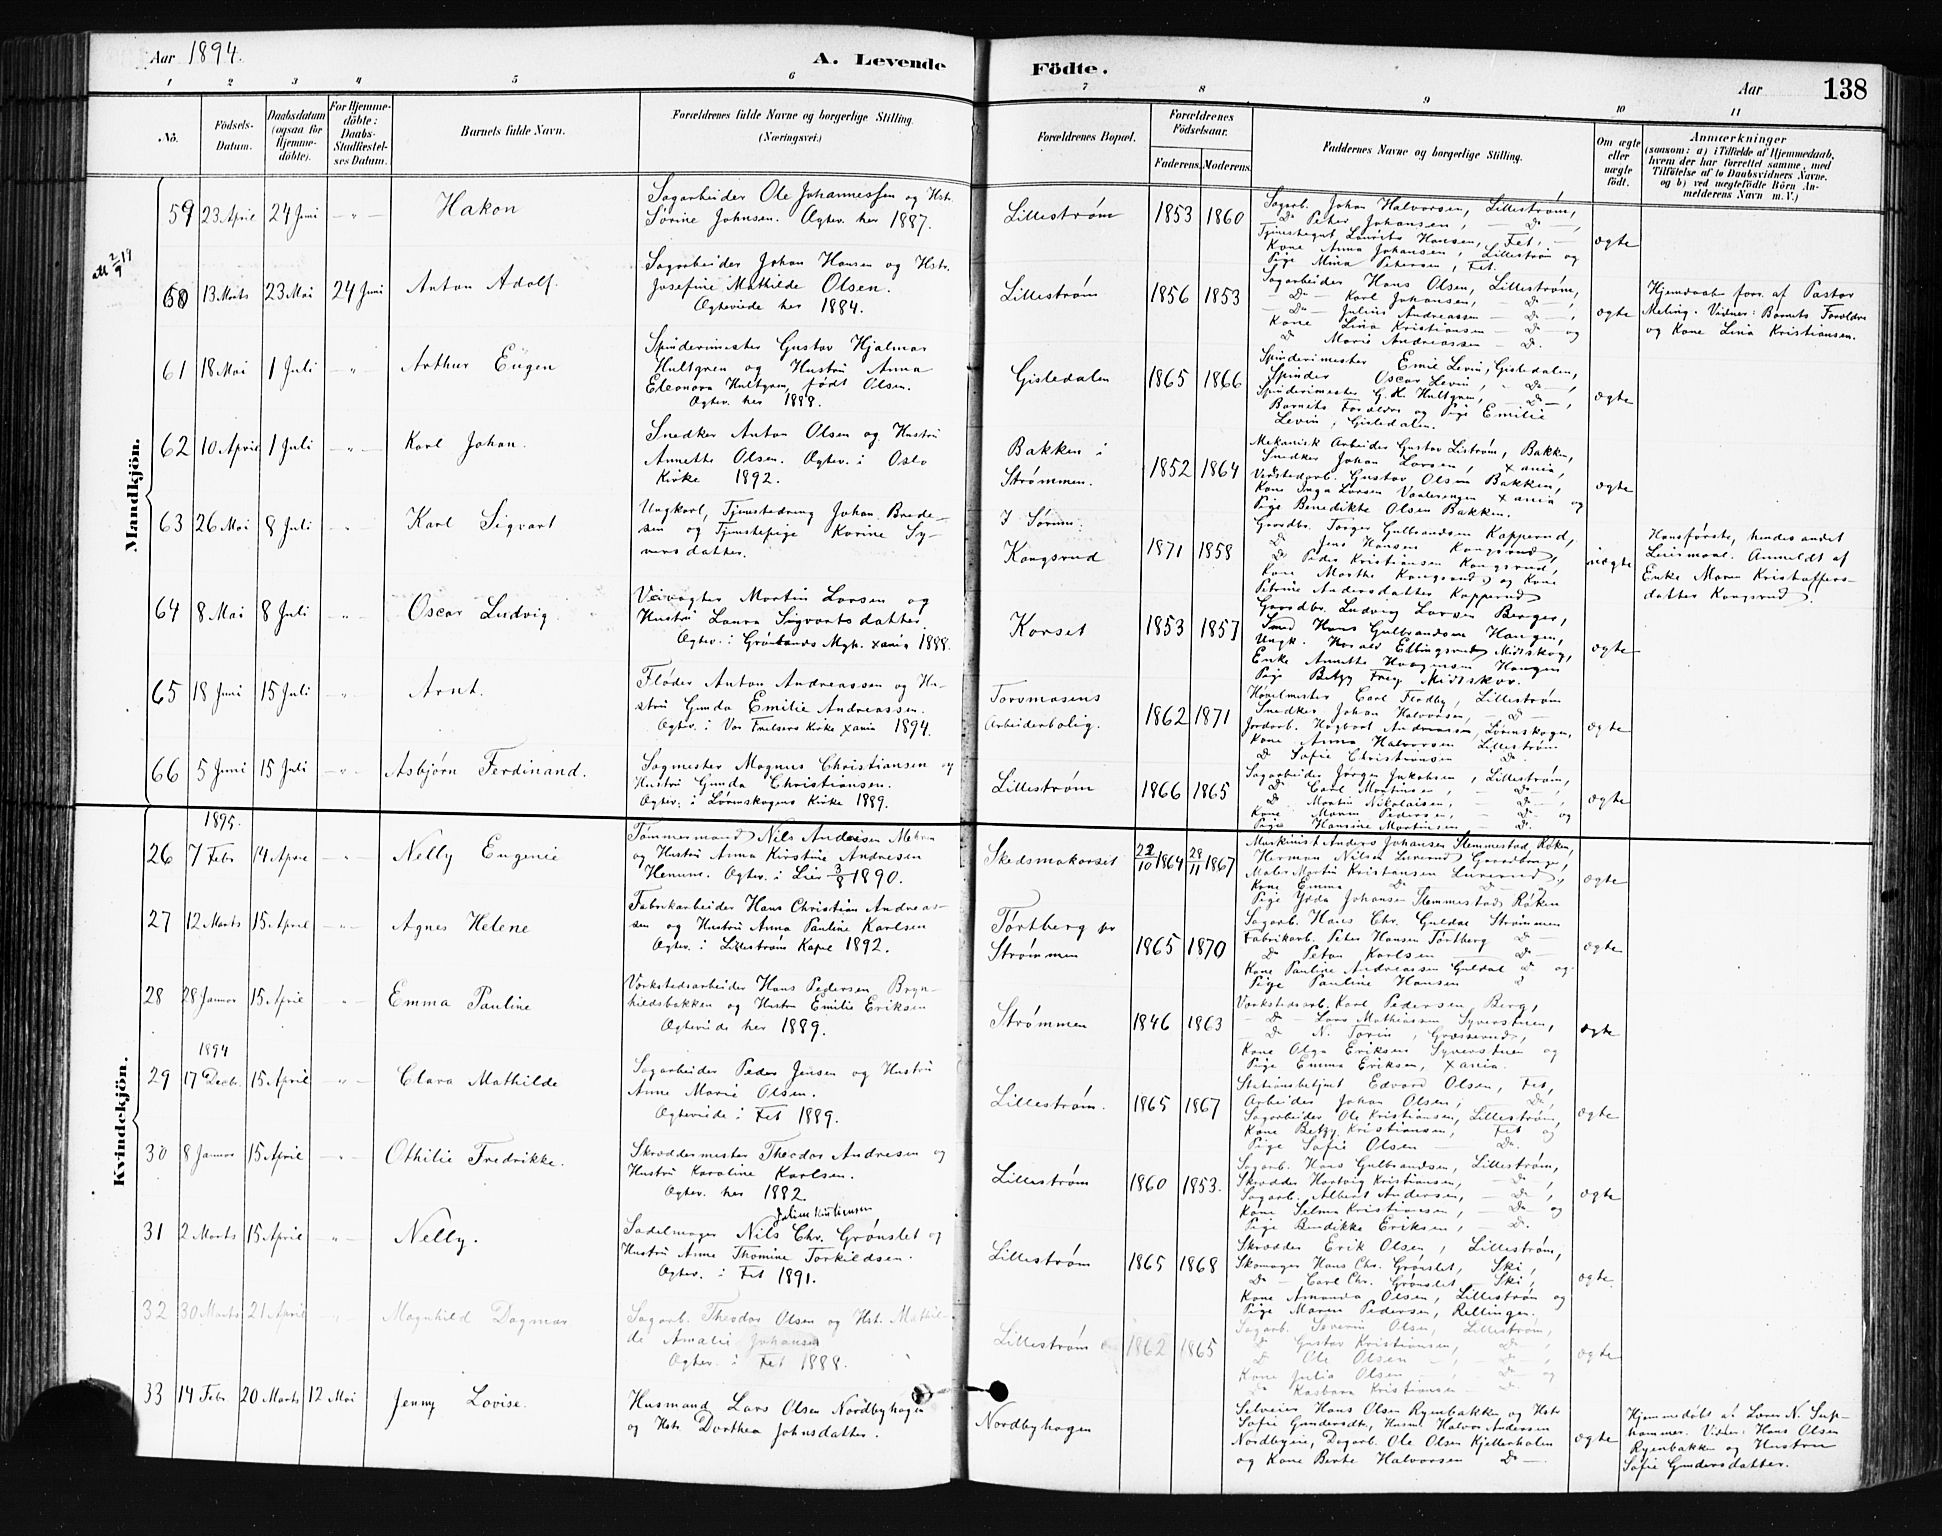 Aar 1894.
A. Levende Födte.
Aar 138
1 2 3 4 5 6 7 8 9 10 11
No.
Födsels-Datum.
Daabsdatum (ogsaa for Hjemme-döbte).
For Hjemme-döbte: Daabs-Stadfæstel-ses Datum.
Barnets fulde Navn.
Forældrenes fulde Navne og borgerlige Stilling. (Næringsvei.)
Forældrenes Bopæl.
Forældrenes Födselsaar.
Faderens. Moderens.
Faddernes Navne og borgerlige Stilling.
Om ægte eller uægte födt.
Anmærkninger
(saasom: a) i Tilfælde af Hjemmedaab,
hvem der har forrettet samme, med
Tilföielse af to Daabsvidners Navne.
og b) ved uægtefödte Börn An-
melderens Navn m. V.)
Mandkjön.
59 23 April 24 Juni — „ — Hakon
Sagarbeider Ole Johannessen og Hst.
Sørine Johnsen. Ægtev. her 1887.
Lillestrøm 1853 1860
Sagarb. Johan Halvorsen, Lillestrøm,
— Do Peter Johansen, — Do —,
Tjenestegut Laurits Hansen, Fet, —
Kone Anna Johansen, Lillestrøm og
Pige Mina Petersen, Fet.
ægte
60 13 Marts 23 Mai 24 Juni Anton Adolf.
Sagarbeider Johan Hansen og Hstr.
Josefine Mathilde Olsen.
Ægteviede her 1884.
Lillestrøm 1856 1853
Sagarbeider Hans Olsen, Lillestrøm,
— Do — Karl Johansen, — Do —,
— Do — Julius Andreassen — Do —,
Kone Lina Kristiansen — Do — og
Do Marie Andreassen — Do.
ægte
Hjemdaab forr. af Pastor
Meling. Vidner: Barnets Forældre
og Kone Lina Kristiansen.
61 18 Mai 1 Juli „ — Arthur Eugen
Spinderimester Gustav Hjalmar
Hultgren og Hustru Anna
Eleonora Hultgren, født Olsen.
Ægtev. her 1888.
Gisledalen 1865 1866
Spinderimester Emil Levin, Gisledalen,
Spinder Oscar Levin, — Do —,
Spinderimester G. H. Hultgren, — Do —,
Barnets Forældre og Pige Emilie
Levin, Gisledalen.
ægte
62 10 April 1 Juli — „ — Karl Johan.
Snedker Anton Olsen og Hustru
Annette Olsen. Ægtev. i Oslo
Kirke 1892.
Bakken i
Strømmen. 1852 1864
Mekanisk Arbeider Gustav Listrøm, Bakken,
Snedker Johan Larsen, Xania,
Værkstedarb. Gustav Olsen Bakken,
Kone Inga Larsen Vaalerengen Xania og
Pige Benedikte Olsen Bakken.
ægte
63 26 Mai 8 Juli „ — Karl Sigvart
Ungkarl, Tjenestedreng Johan Brede-
sen og Tjenestepige Karine Sy-
versdatter.
I Sørum:
Kongsrud 1871 1858
Gaardbr. Torger Gulbrandsen Kapperud,
Do Jens Hansen Kongsrud,
Do Peder Kristiansen Kongsrud,
Kone Marthe Kongsrud og Kone
Petrine Andersdatter Kapperud
uægte
Hansførste, hendes andet
Leiermaal. Anmeldt af
Enke Maren Kristoffers-
datter Kongsrud.
64 8 Mai 8 Juli — „ — Oscar Ludvig
Veivogter Martin Larsen og
Hustru Laura Sigvartsdatter.
Ægtev. i Grønlands Mgh. Xania 1888.
Korset 1853 1857
Gaardbr. Ludvig Larsen Berger,
Smed Hans Gulbrandsen Haugen,
Ungk. Harald Ellingsrud Midtskog,
Enke Annette Haagensen Haugen
Pige Betzy Frey Midtskov.
ægte
65 18 Juni 15 Juli „ — Arnt.
Fløder Anton Andreassen og Hu-
stru Gunda Emilie Andreassen.
Ægtev. i Vor Frelsers Kirke Xania 1894.
Torvmosens
Arbeiderbolig. 1862 1871
Høvelmester Carl Flodby, Lillestrøm
Snedker Johan Halvorsen, — Do —
Jordarb. Hagbart Andreassen, Lørenskogen,
Kone Anna Halvorsen Lillestrøm
Do Sofie Christiansen Do.
ægte
66 5 Juni 15 Juli — „ — Asbjørn Ferdinand.
Sagmester Magnus Christiansen og
Hustru Gunda Christiansen.
Ægtev. i Lørenskogens Kirke 1889.
Lillestrøm 1866 1865
Sagarbeider Jørgen Jakobsen, Lillestrøm,
Do Carl Martinsen, — Do —
Do Martin Nikolaisen, — Do —,
Kone Maren Pedersen, — Do — og
Pige Hansine Martinsen — Do.
ægte
Kvindekjön.
1895.
26 7 Febr 14 April — „ — Nelly Eugenie
Tømmermand Nils Andresen
og Hustru Anna Kirstine Andresen
Ægtev. i Lier 3/8 1890.
Skedsmokorset 1864 29/11 1867
Maskinist Anders Johansen Slemmestad, Røken,
Herman Nilsen Gaardbruger,
Maler Martin Kristiansen
Kone Emma — Do — Do —
Pige Johansen Slemmestad Røken
ægte
27 12 Marts 15 April — „ — Agnes Helene
Fabrikarbeider Hans Christian Andreas-
sen og Hustru Anna Pauline Karlsen
Ægtev. i Lillestrøm Kapel 1892.
Tørtberg pr
Strømmen 1865 1870
Sagarb. Hans Chr. Guldal Strømmen
Fabrikarb. Peter Hansen Tørtberg Do —
Do Peter Karlsen Do —
Kone Pauline Andreassen Guldal Do og
Pige Pauline Hansen
ægte
28 28 Januar 15 April — „ — Emma Pauline
Værkstedsarbeider Hans Pedersen Bryn-
hildsbakken og Hustru Emilie Eriksen
Ægteviede her 1889.
Strømmen 1846 1863
Værkstedsarb. Karl Pedersen Berg,
— Do — Lars Mathiassen Syverstuen,
— Do — N. Torin, Græsserud,
Kone Olga Eriksen Syverstuen og
Pige Emma Eriksen, Xania.
ægte
1894
29 17 Decbr. 15 April — „ — Clara Mathilde
Sagarbeider Peder Jensen og Hustru
Anne Marie Olsen.
Ægteviede i Fet 1889.
Lillestrøm. 1865 1867
Stationsbetjent Edvard Olsen, Fet,
Arbeider Johan Olsen, — Do,
Sagarbeider Ole Kristiansen, Lillestrøm,
Kone Betzy Kristiansen, Fet og
Pige Sofie Olsen — Do.
ægte
30 8 Januar 15 April — „ — Othilie Fredrikke.
Skræddermester Theodor Andresen og
Hustru Karoline Karlsen.
Ægtev. her 1882.
Lillestrøm 1860 1853.
Sagarb. Hans Gulbrandsen, Lillestrøm,
Skrædder Hartvig Kristiansen, — Do —,
Sagarb. Albert Andersen, — Do —,
Kone Selma Kristiansen, — Do — og
Pige Bendikke Eriksen, — Do.
ægte
31 2 Marts 15 April — „ — Nelly.
Sadelmager Nils Chr. Grønslet og
Hustru Anne Thomine Torkildsen.
Ægtev. i Fet 1891.
Lillestrøm 1865 1868
Skrædder Erik Olsen, Lillestrøm,
Skomager Hans Chr. Grønslet, Ski,
Do — Carl Chr. Grønslet — Ski,
Kone Amanda Olsen, Lillestrøm og
Pige Maren Pedersen, Rellingen.
ægte
32 30 Marts 21 April „ Magnhild Dagmar
Sagarb. Theodor Olsen og Hst. Mathil-
de Amalie Johansen
Ægtev. i Fet 1888.
Lillestrøm 1862 1865
Sagarb. Severin Olsen, Lillestrøm,
Do Gustav Kristiansen, — Do —,
Do Ole Olsen — Do —,
Kone Julia Olsen — Do — og
Do Kasbara Kristiansen — Do
ægte
33 14 Febr 20 Marts 12 Mai Jenny Lovise.
Husmand Lars Olsen Nordbyhagen
og Hst. Dorthea Johnsdatter.
Nordbyhagen
Selveier Hans Olsen Rynbakken og Hstr
Sofie Gundersdtr, Husm. Halvor Andersen
Nordbyeie, Dagarb. Ole Olsen Kjellerholen
og Kone Berte Halvorsen Do —
ægte
Hjemmedøbt af Lærer N. Sup-
hammer. Vidner: Hans Olsen
Rynbakken og Hustru
Sofie Gundersdatter.